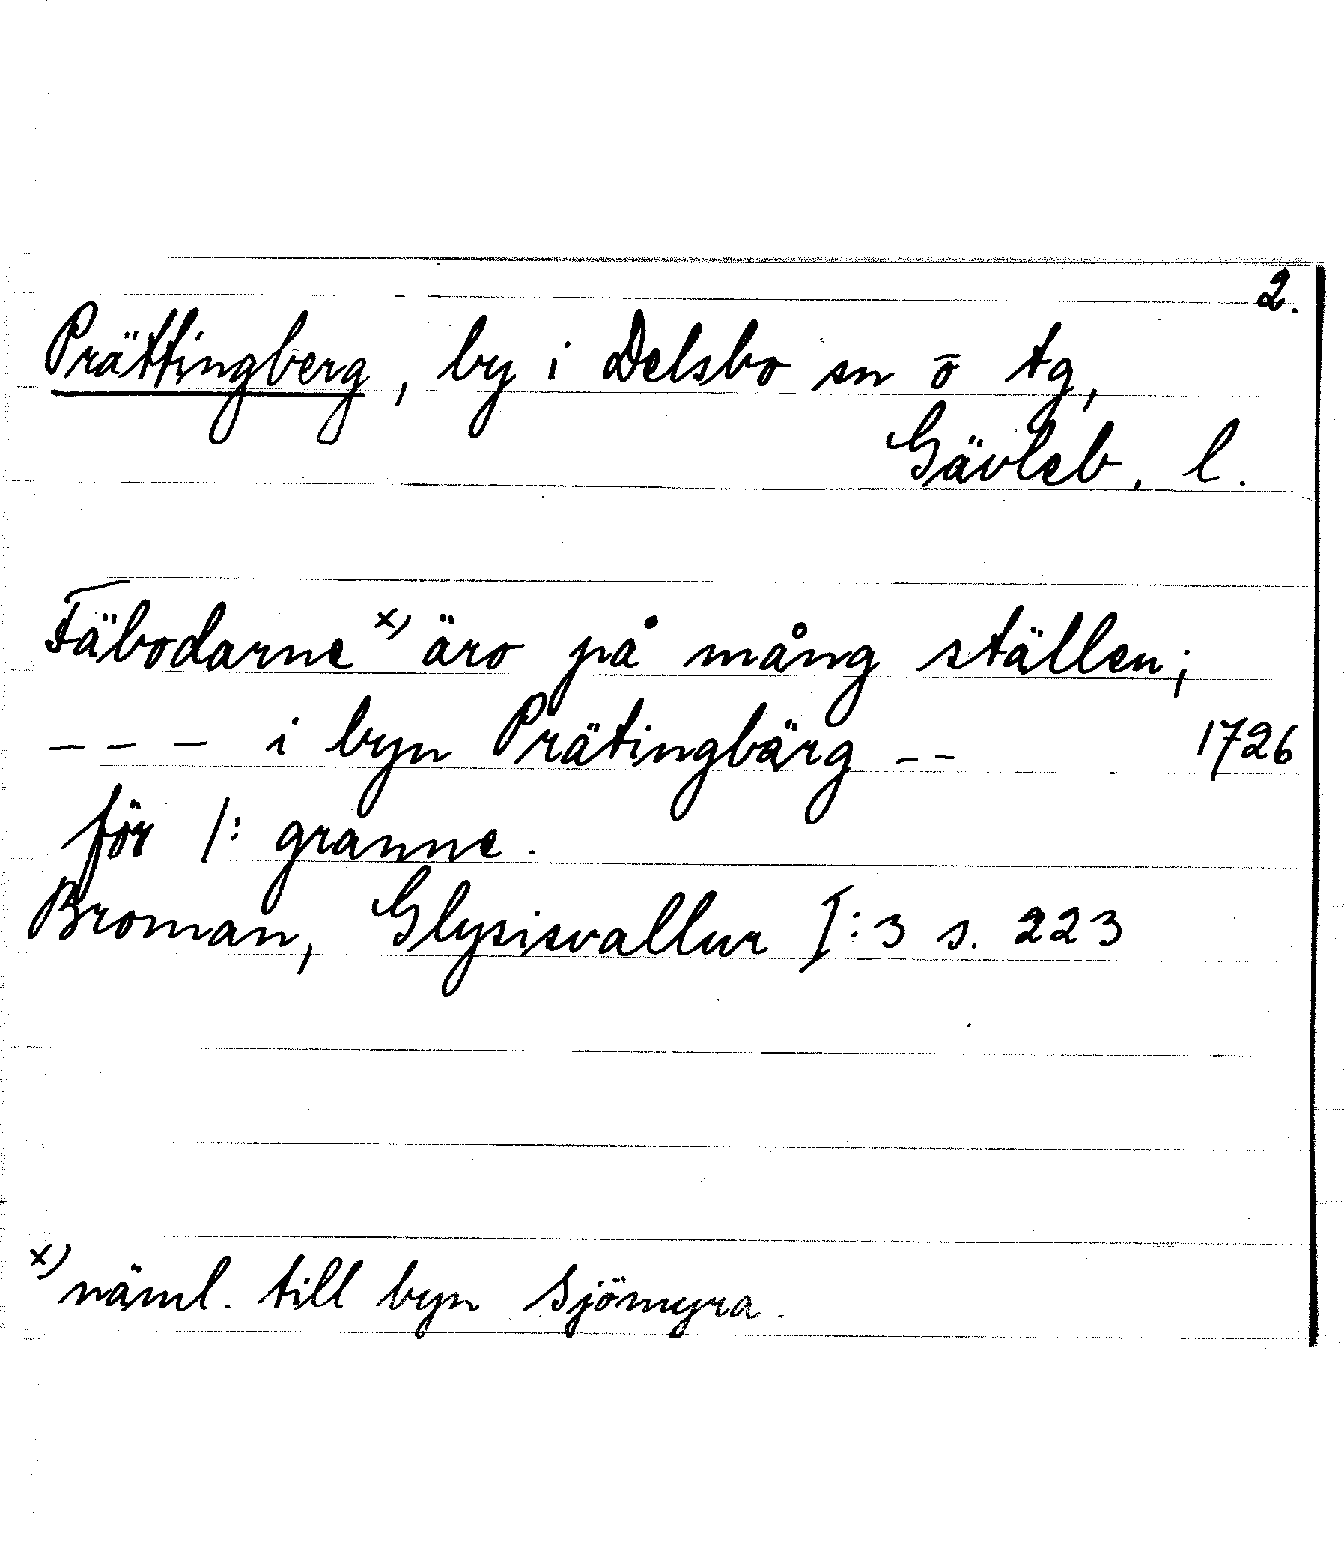 2.
Prättingberg, by i Delsbo sn o tg,
Gävleb. l.
Fäbodarne x) äro på mång ställen;
--- i byn Prätingbärg -- 1726
för 1: granne.
Broman, Glysisvallur I:3 s. 223
x) näml. till byn Sjömyra.